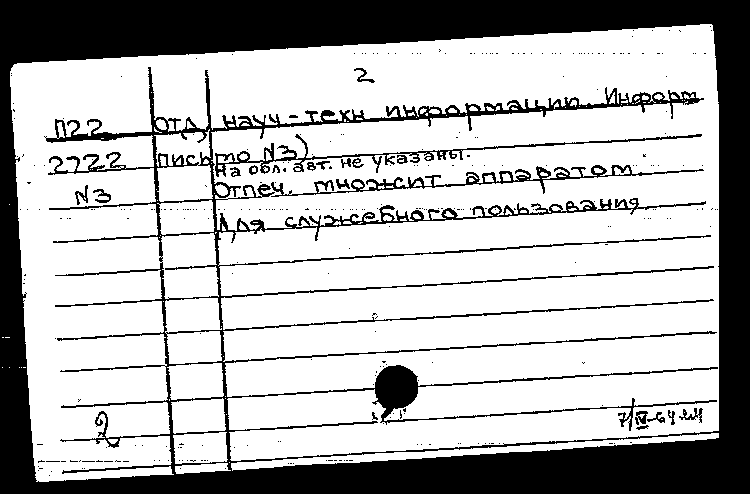 2
П22 отд. науч-техн информации. Информ
2722 письмо N3)
На обл. авт. не указаны.
N3 Отпеч. множит аппаратом.
Для служебного пользования
2 7/IV-64